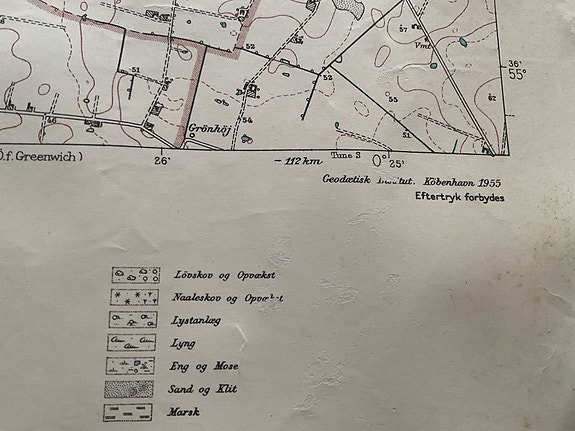 57
Vmt
36'
55°
52
52
51
55
62
54
51
Grönhöj
Ö.f. Greenwich)
26'
- 112 km
Tune S
0°
25'
Geodætisk Institut. Köbenhavn 1955
Eftertryk forbydes
Lövskov og Opvækst
Naaleskov og Opvækst
Lystanlæg
Lyng
Eng og Mose
Sand og Klit
Marsk